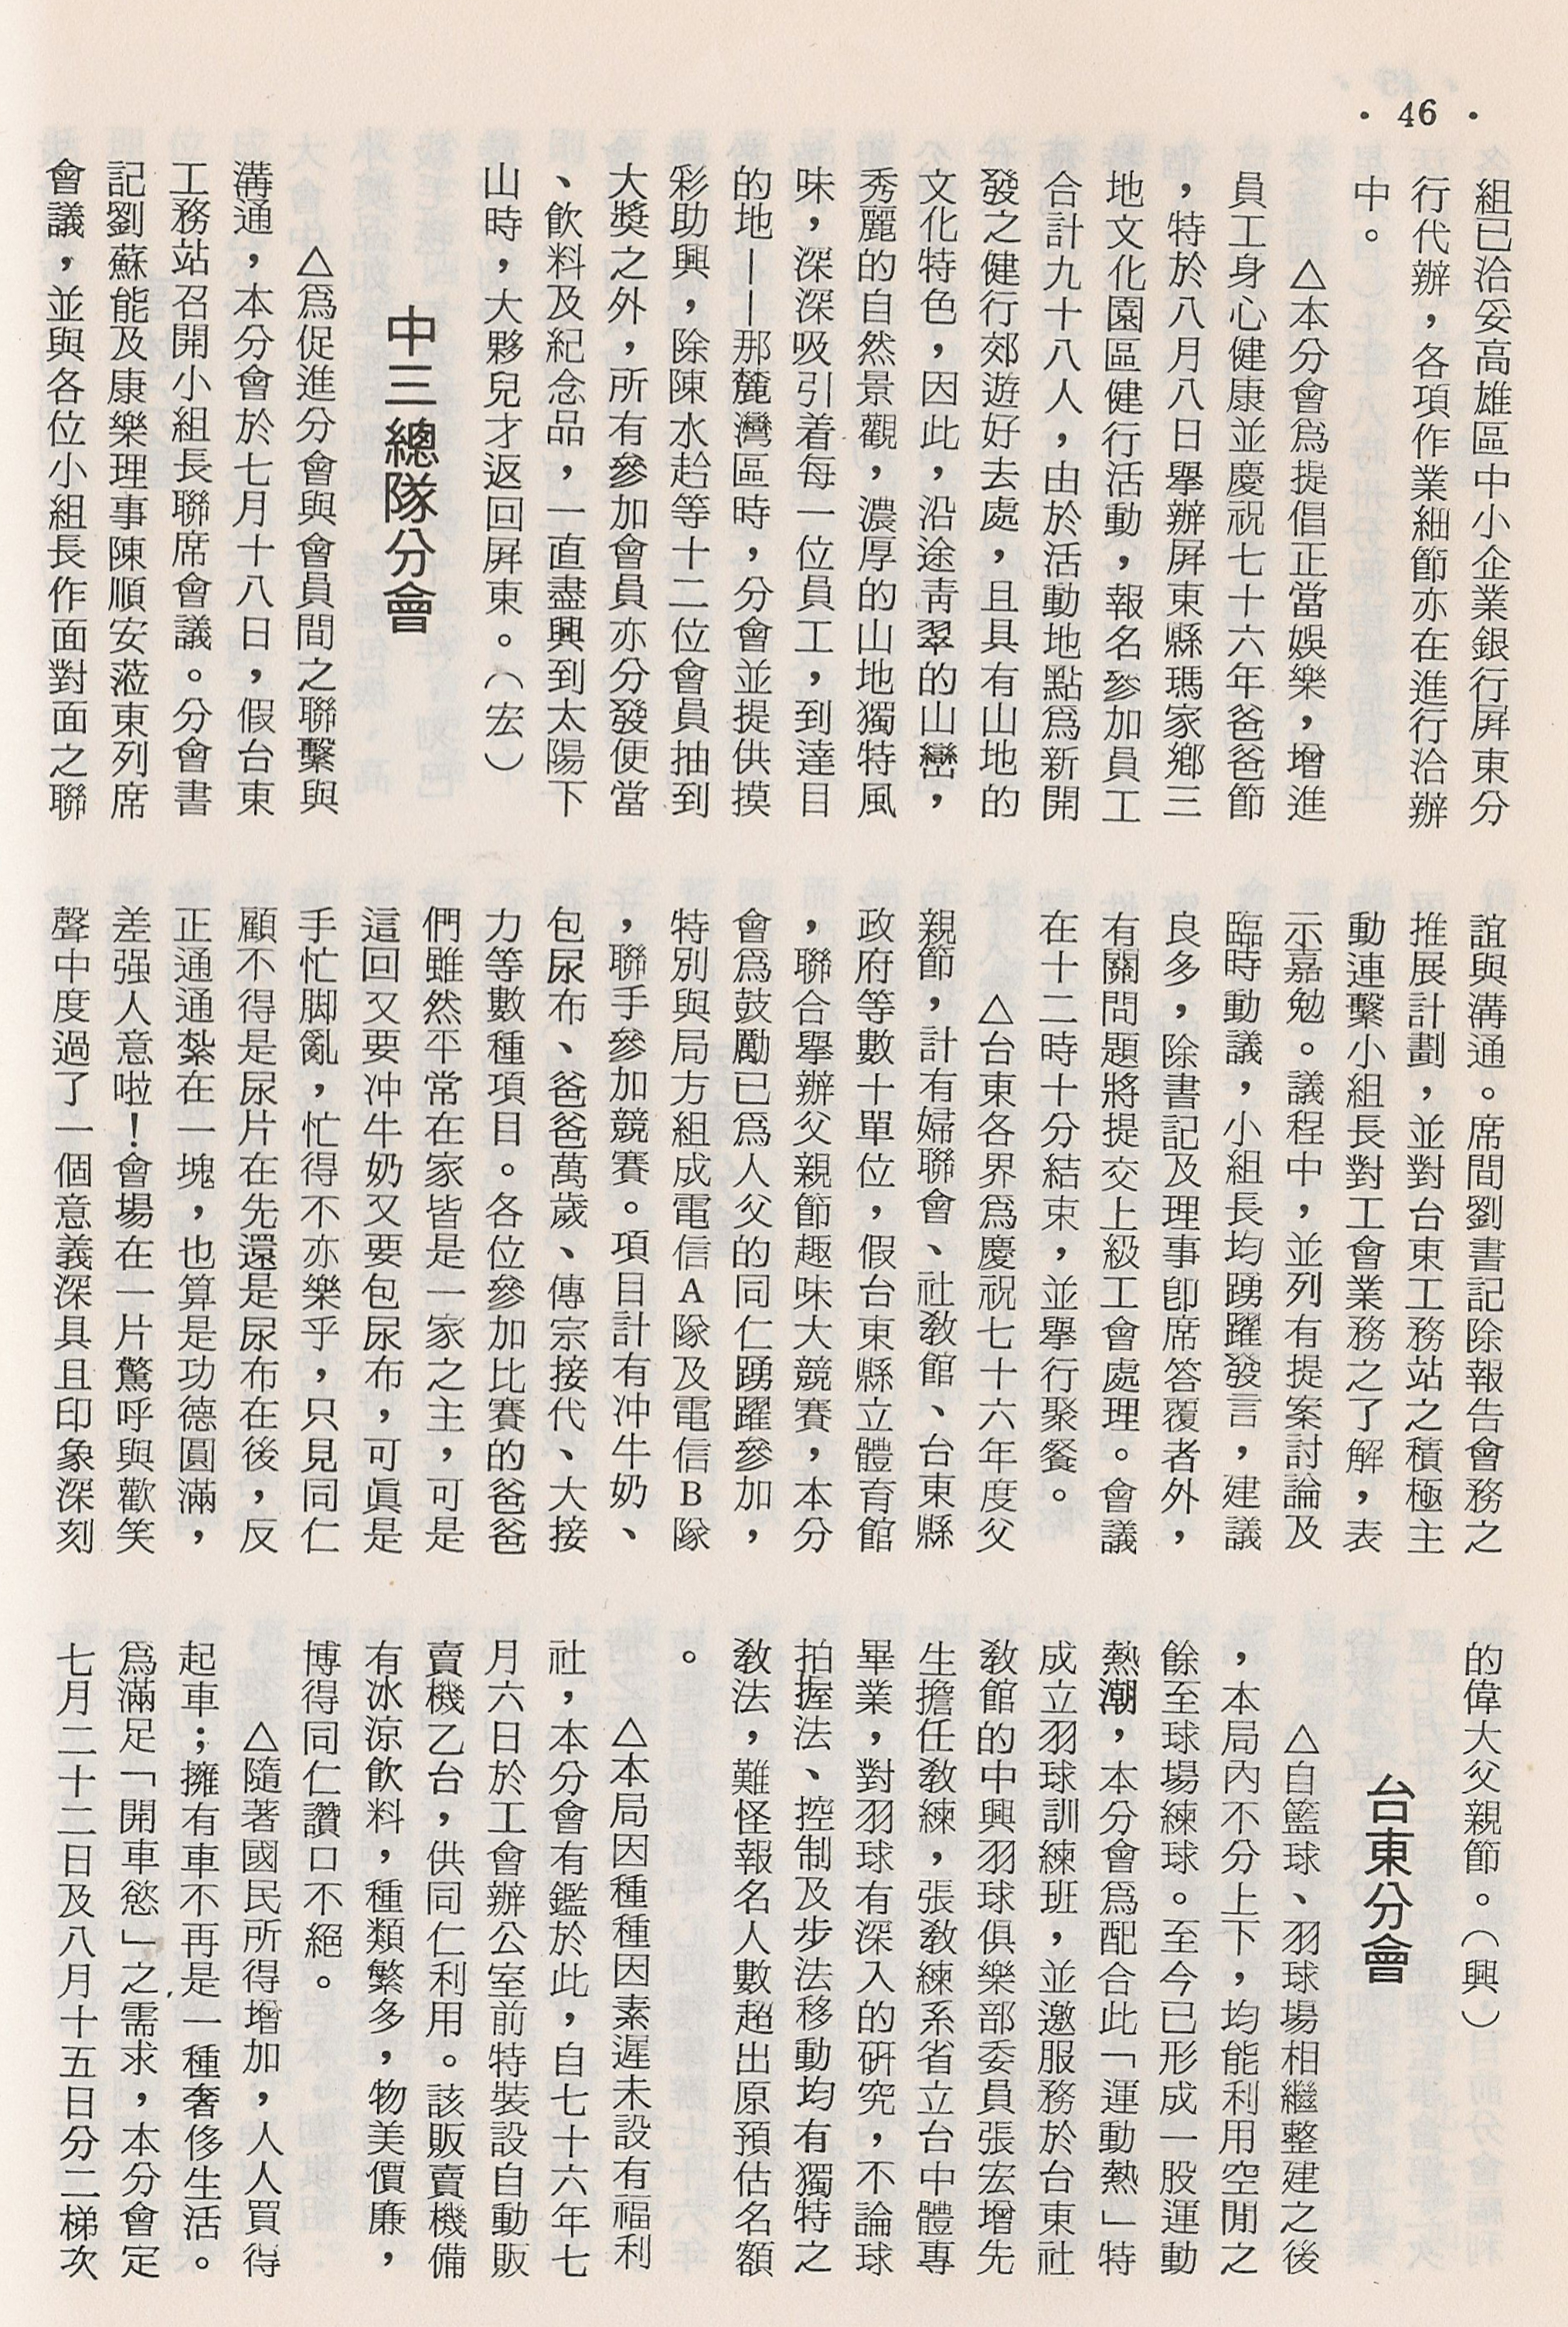 • 46 •
組已洽妥高雄區中小企業銀行屏東分
行代辦，各項作業細節亦在進行洽辦
中。
△本分會爲提倡正當娛樂，增進
員工身心健康並慶祝七十六年爸爸節
，特於八月八日舉辦屏東縣瑪家鄉三
地文化園區健行活動，報名參加員工
合計九十八人，由於活動地點爲新開
發之健行郊遊好去處，且具有山地的
文化特色，因此，沿途靑翠的山巒，
秀麗的自然景觀，濃厚的山地獨特風
味，深深吸引着每一位員工，到達目
的地——那麓灣區時，分會並提供摸
彩助興，除陳水趈等十二位會員抽到
大獎之外，所有參加會員亦分發便當
、飲料及紀念品，一直盡興到太陽下
山時，大夥兒才返回屏東。（宏）
中三總隊分會
△爲促進分會與會員間之聯繫與
溝通，本分會於七月十八日，假台東
工務站召開小組長聯席會議。分會書
記劉蘇能及康樂理事陳順安蒞東列席
會議，並與各位小組長作面對面之聯
誼與溝通。席間劉書記除報告會務之
推展計劃，並對台東工務站之積極主
動連繫小組長對工會業務之了解，表
示嘉勉。議程中，並列有提案討論及
臨時動議，小組長均踴躍發言，建議
良多，除書記及理事卽席答覆者外，
有關問題將提交上級工會處理。會議
在十二時十分結束，並舉行聚餐。
△台東各界爲慶祝七十六年度父
親節，計有婦聯會、社敎館、台東縣
政府等數十單位，假台東縣立體育館
，聯合舉辦父親節趣味大競賽，本分
會爲鼓勵已爲人父的同仁踴躍參加，
特別與局方組成電信A隊及電信B隊
，聯手參加競賽。項目計有冲牛奶、
包尿布、爸爸萬歲、傳宗接代、大接
力等數種項目。各位參加比賽的爸爸
們雖然平常在家皆是一家之主，可是
這回又要冲牛奶又要包尿布，可眞是
手忙脚亂，忙得不亦樂乎，只見同仁
顧不得是尿片在先還是尿布在後，反
正通通紮在一塊，也算是功德圓滿，
差强人意啦！會場在一片驚呼與歡笑
聲中度過了一個意義深具且印象深刻
的偉大父親節。（興）
台東分會
△自籃球、羽球場相繼整建之後
，本局內不分上下，均能利用空閒之
餘至球場練球。至今已形成一股運動
熱潮，本分會爲配合此「運動熱」特
成立羽球訓練班，並邀服務於台東社
敎館的中興羽球俱樂部委員張宏增先
生擔任敎練，張敎練系省立台中體專
畢業，對羽球有深入的研究，不論球
拍握法、控制及步法移動均有獨特之
敎法，難怪報名人數超出原預估名額
。
△本局因種種因素遲未設有福利
社，本分會有鑑於此，自七十六年七
月六日於工會辦公室前特裝設自動販
賣機乙台，供同仁利用。該販賣機備
有冰涼飲料，種類繁多，物美價廉，
博得同仁讚口不絕。
△隨著國民所得增加，人人買得
起車；擁有車不再是一種奢侈生活。
爲滿足「開車慾」之需求，本分會定
七月二十二日及八月十五日分二梯次